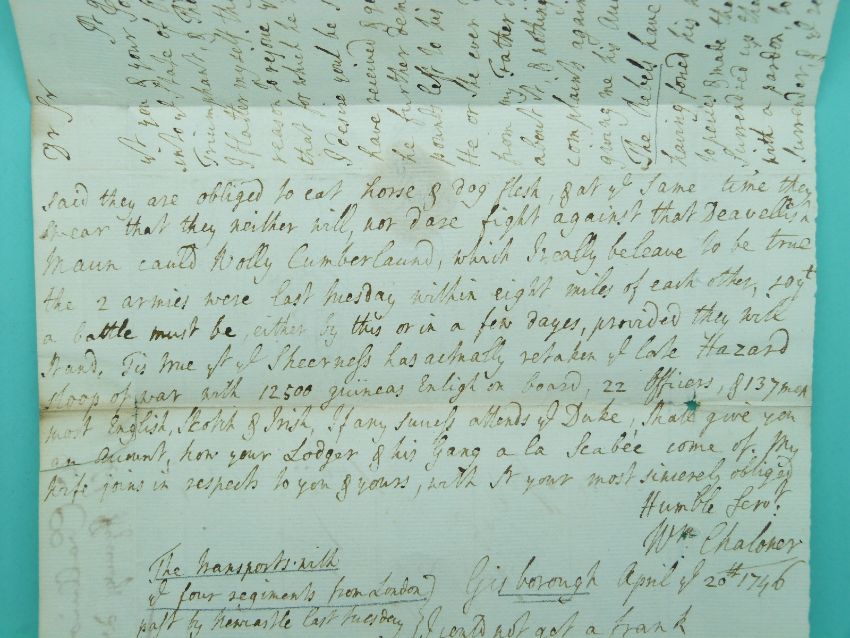 Dr Sr
If you & your
into ye state of
Triumphant, &
I flatter myself
reason to rejoyce
that for which he
I desire youl be
have received &
the further
points left to his
He or she ever
from my Father
about it, & nothing
complaints against
giving me his
The Rebels have
having forced his
to rescue & made the
Surrendred up
with a pardon, to
surrender, & yt
said they are obliged to eat horse & dog flesh, & at ye same time they
swear that they neither will, nor dare fight against that Deavellish
Maun cauld Wolly Cumberlaund, which I really beleave to be true
the 2 armies were last tuesday within eight miles of each other, so yt
a battle must be, either by this or in a few dayes, provided they will
stand. Tis true yt ye Sheerness has actually retaken ye late Hazard
sloop of war with 12500 guineas English on board, 22 Officers, & 137 men
most English, Scotch & Irish, If any success attends ye Duke, I shall give you
an account, how your Lodger & his Gang a la Scabee come of. My
wife joins in respects to you & yours, with Sr your most sincerely obliged
Humble Servt.
Wm. Chaloner
The transports with
ye four regiments from London
past by Newcastle last tuesday
Gisborough April ye 20th 1746
I could not get a frank